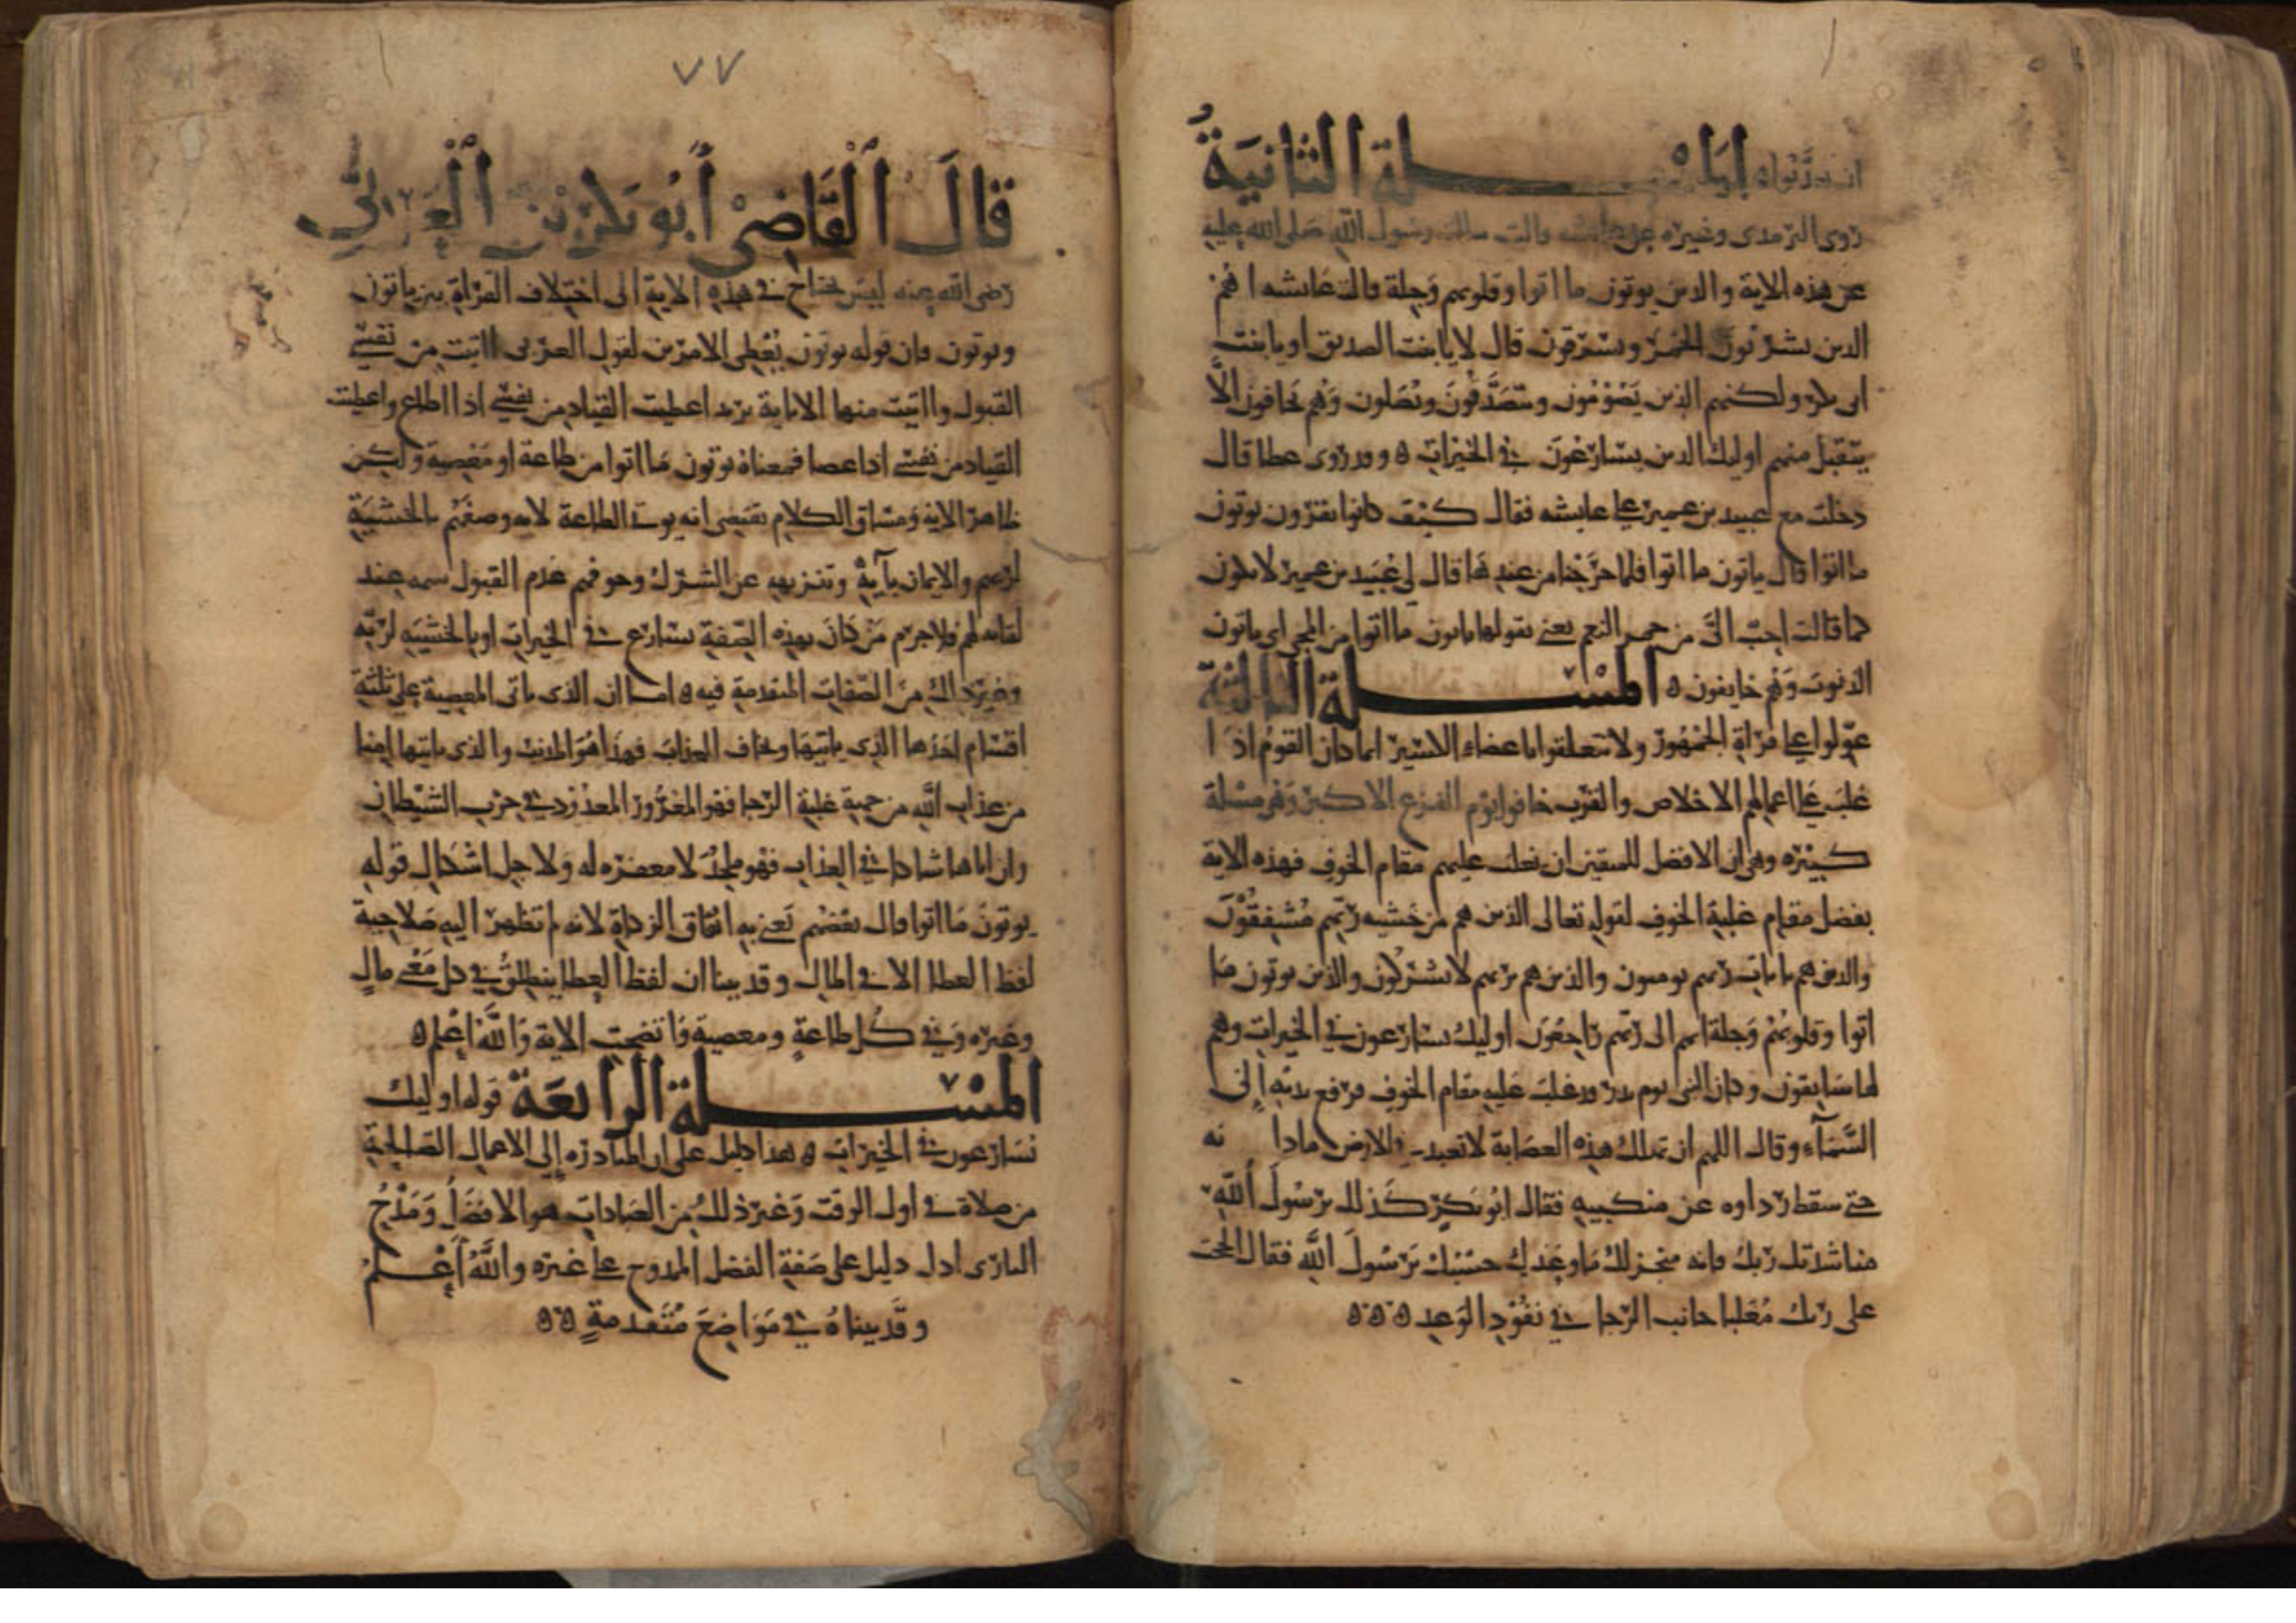 المسلة الثانية
روى الترمذى وغيره عن عايشه قالت سالت رسول الله صلى الله عليه
عن هذه الاية والذين يوتون ما اتوا وقلوبهم وجلة قالت عايشه اهم
الذين يشربون الخمر ويسرقون قال لا يا ابنت الصديق او يا بنت
ابى بكر ولكنهم الذين يصومون ويتصدقون ويصلون وهم يخافون الا
يتقبل منهم اوليك الذين يسارعون في الخيرات ه وقد روى عطا قال
دخلت مع عبيد بن عمير على عايشه فقال كيف كانوا يقرون يوتون
ما اتوا قال ياتون ما اتوا فلما خرجنا من عندها قال لي عبيد بن عمير لان يكون
كما قالت احب الى من حمر النعم يعني بقولها ياتون ما اتوا من المجى اى ياتون
الذنوب وهم خايفون ه المسلة الثالثة
عولوا على قراة الجمهور ولا تتعلقوا باعضاء الاسير انما كان القوم اذا
غلب على اعمالهم الاخلاص والقرب خافوا يوم الفزع الاكبر وهي مسلة
كبيره وهي ان الافضل للمتقين ان يغلب عليهم مقام الخوف فهذه الاية
بفضل مقام غلبة الخوف لقوله تعالى الذين هم من خشيه ربهم مشفقون
والذين هم بايات ربهم يومنون والذين هم بربهم لا يشركون والذين يوتون ما
اتوا وقلوبهم وجلة انهم الى ربهم راجعون اوليك يسارعون في الخيرات وهم
لها سابقون وكان النبى يوم بدر قد غلب عليه مقام الخوف فرفع يديه إلى
السماء وقال اللهم ان تهلك هذه العصابة لا تعبد في الارض مادا نه
حتى سقط رداوه عن منكبيه فقال ابو بكر كذلك يرسول الله
مناشدتك ربك فانه منجز لك ما وعدك حسبك يرسول الله فقال الحت
على ربك مغلبا جانب الرجا في نفوذ الوعد ه ه ه
٧٧
قال القاضي أبو بكر بن العربي
رضى الله عنه ليس نحتاج في هذه الاية الى اختلاف القراة بين ياتون
ويوتون فان قوله يوتون يعطى الامرين لقول العربى ااتيت من نفسي
القبول وااتيت منها الانابة يريد اعطيت القياد من نفسي اذا اطاع واعطيت
القياد من نفسي اذا عصا فمعناه يوتون ما اتوا من طاعة او معصية ولكن
ظاهر الاية ومساق الكلام يقتضى انه يوتى الطاعة لانه وصفهم بالخشية
لربهم والايمان بآية وتنزيهه عن الشرك وخوفهم عدم القبول منه عند
لقايه لهم فلا جرم من كان بهذه الصفة يسارع في الخيرات او بالخشية لربه
وغير ذلك من الصفات المتقدمة فيه ه اما ان الذى ياتى المعصية على ثلثة
اقسام احدها الذى ياتيها ويخاف العذاب فهذا هو المذنب والذى ياتيها امنا
من عذاب الله من جهة غلبة الرجا فهو المغرور المعدود في حزب الشيطان
وان اتاها شاكا في العذاب فهو ملحد لا مغفره له ولاجل اشكال قوله
يوتون ما اتوا قال بعضهم يعني به انفاق الزكاة لانه لم تظهر اليه صلاحية
لفظ العطا الا في المال وقد بينا ان لفظ العطا ينطلق في كل معنى مال
وغيره وفي كل طاعة ومعصية فاتضحت الاية والله اعلم ه
المسلة الرابعة قوله اوليك
يسارعون في الخيرات ه هذا دليل على ان المبادره إلى الاعمال الصالحة
من صلاة في اول الوقت وغير ذلك من العبادات هو الافضل ومدح
البارى ادل دليل على صفة الفضل الممدوح على غيره والله أعلم
وقد بيناه في مواضع متقدمة ه ه